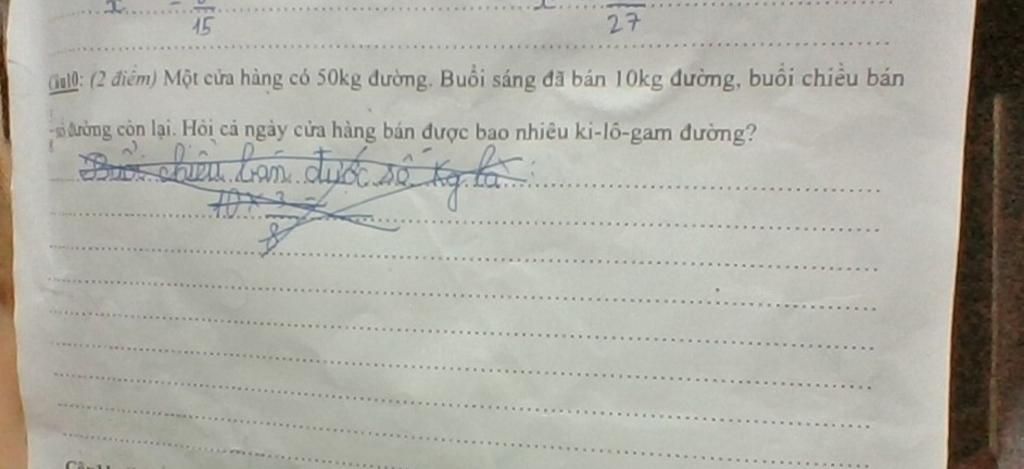 15 27
Câu10: (2 điểm) Một cửa hàng có 50kg đường. Buổi sáng đã bán 10kg đường, buổi chiều bán
số đường còn lại. Hỏi cả ngày cửa hàng bán được bao nhiêu ki-lô-gam đường?
Buổi chiều bán được số kg là:
10 × 3 =
8